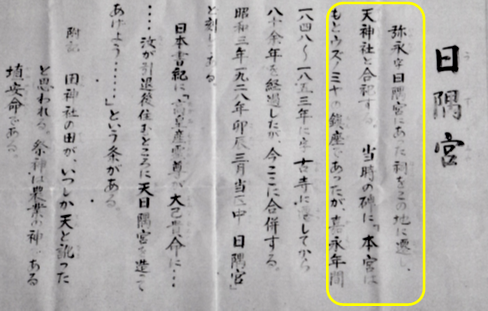 日隅宮
弥永字日隅宮にあった祠をこの地に遷し、
天神社と合祀する。当時の碑に「本宮は
もとウズノミヤの鎮座であったが、嘉永年間
一八四八～一八五三年に字古寺に遷してから
八十余年を経過したが、今ここに合併する。
昭和三年一九二八年卯辰三月当区中 日隅宮」
と刻してある
日本書紀に「高皇産霊尊が大己貴命に…
…汝が引退後住むところに天日隅宮を造って
あげよう……」という条がある。
附記 田神社の田が、いつしか天と訛った
と思われる。祭神は農業の神 ある
埴安命である